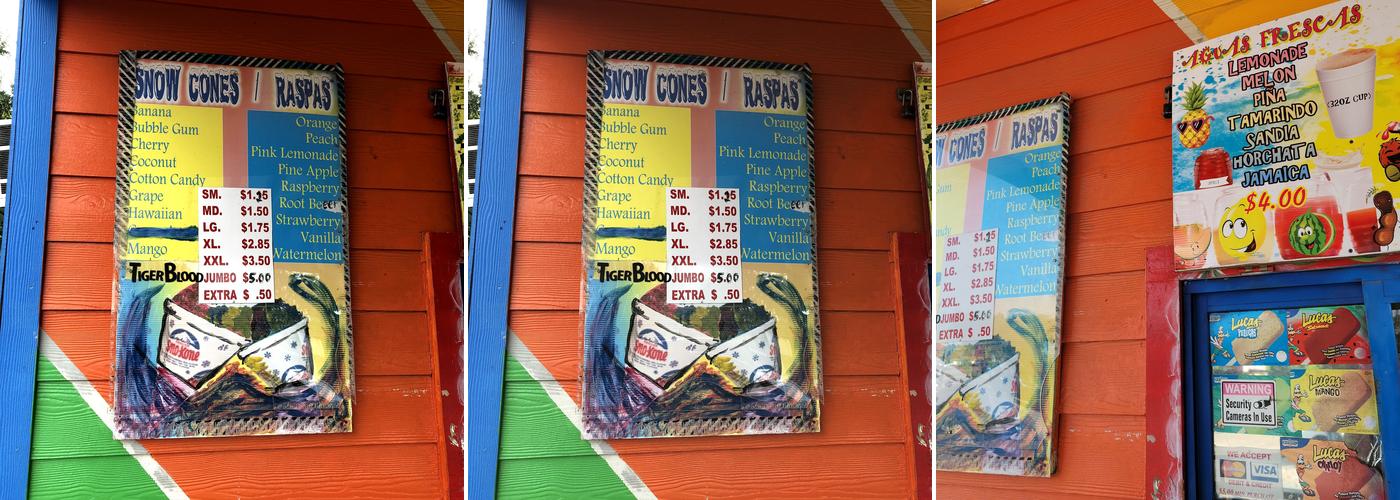 SNOW CONES / RASPAS
Banana
Bubble Gum
Cherry
Coconut
Cotton Candy
Grape
Hawaiian
Mango
Orange
Peach
Pink Lemonade
Pine Apple
Raspberry
Root Beer
Strawberry
Vanilla
Watermelon
SM. $1.25
MD. $1.50
LG. $1.75
XL. $2.85
XXL. $3.50
JUMBO $5.00
EXTRA $ .50
TIGER BLOOD
Sno-Kone
SNOW CONES / RASPAS
Banana
Bubble Gum
Cherry
Coconut
Cotton Candy
Grape
Hawaiian
Mango
Orange
Peach
Pink Lemonade
Pine Apple
Raspberry
Root Beer
Strawberry
Vanilla
Watermelon
SM. $1.25
MD. $1.50
LG. $1.75
XL. $2.85
XXL. $3.50
JUMBO $5.00
EXTRA $ .50
TIGER BLOOD
Sno-Kone
W CONES / RASPAS
Gum
ndy
Orange
Peach
Pink Lemonade
Pine Apple
Raspberry
Root Bee
Strawberry
Vanilla
Watermelon
SM. $1.25
MD. $1.50
LG. $1.75
XL. $2.85
XXL. $3.50
D JUMBO $5.00
EXTRA $ .50
AGUAS FRESCAS
LEMONADE
MELON
PIÑA
TAMARINDO
SANDIA
HORCHATA
JAMAICA
$4.00
(32OZ CUP)
Lucas
Lucas
Lucas
MANGO
Lucas
WARNING
Security
Cameras In Use
WE ACCEPT
MasterCard
VISA
DEBIT & CREDIT